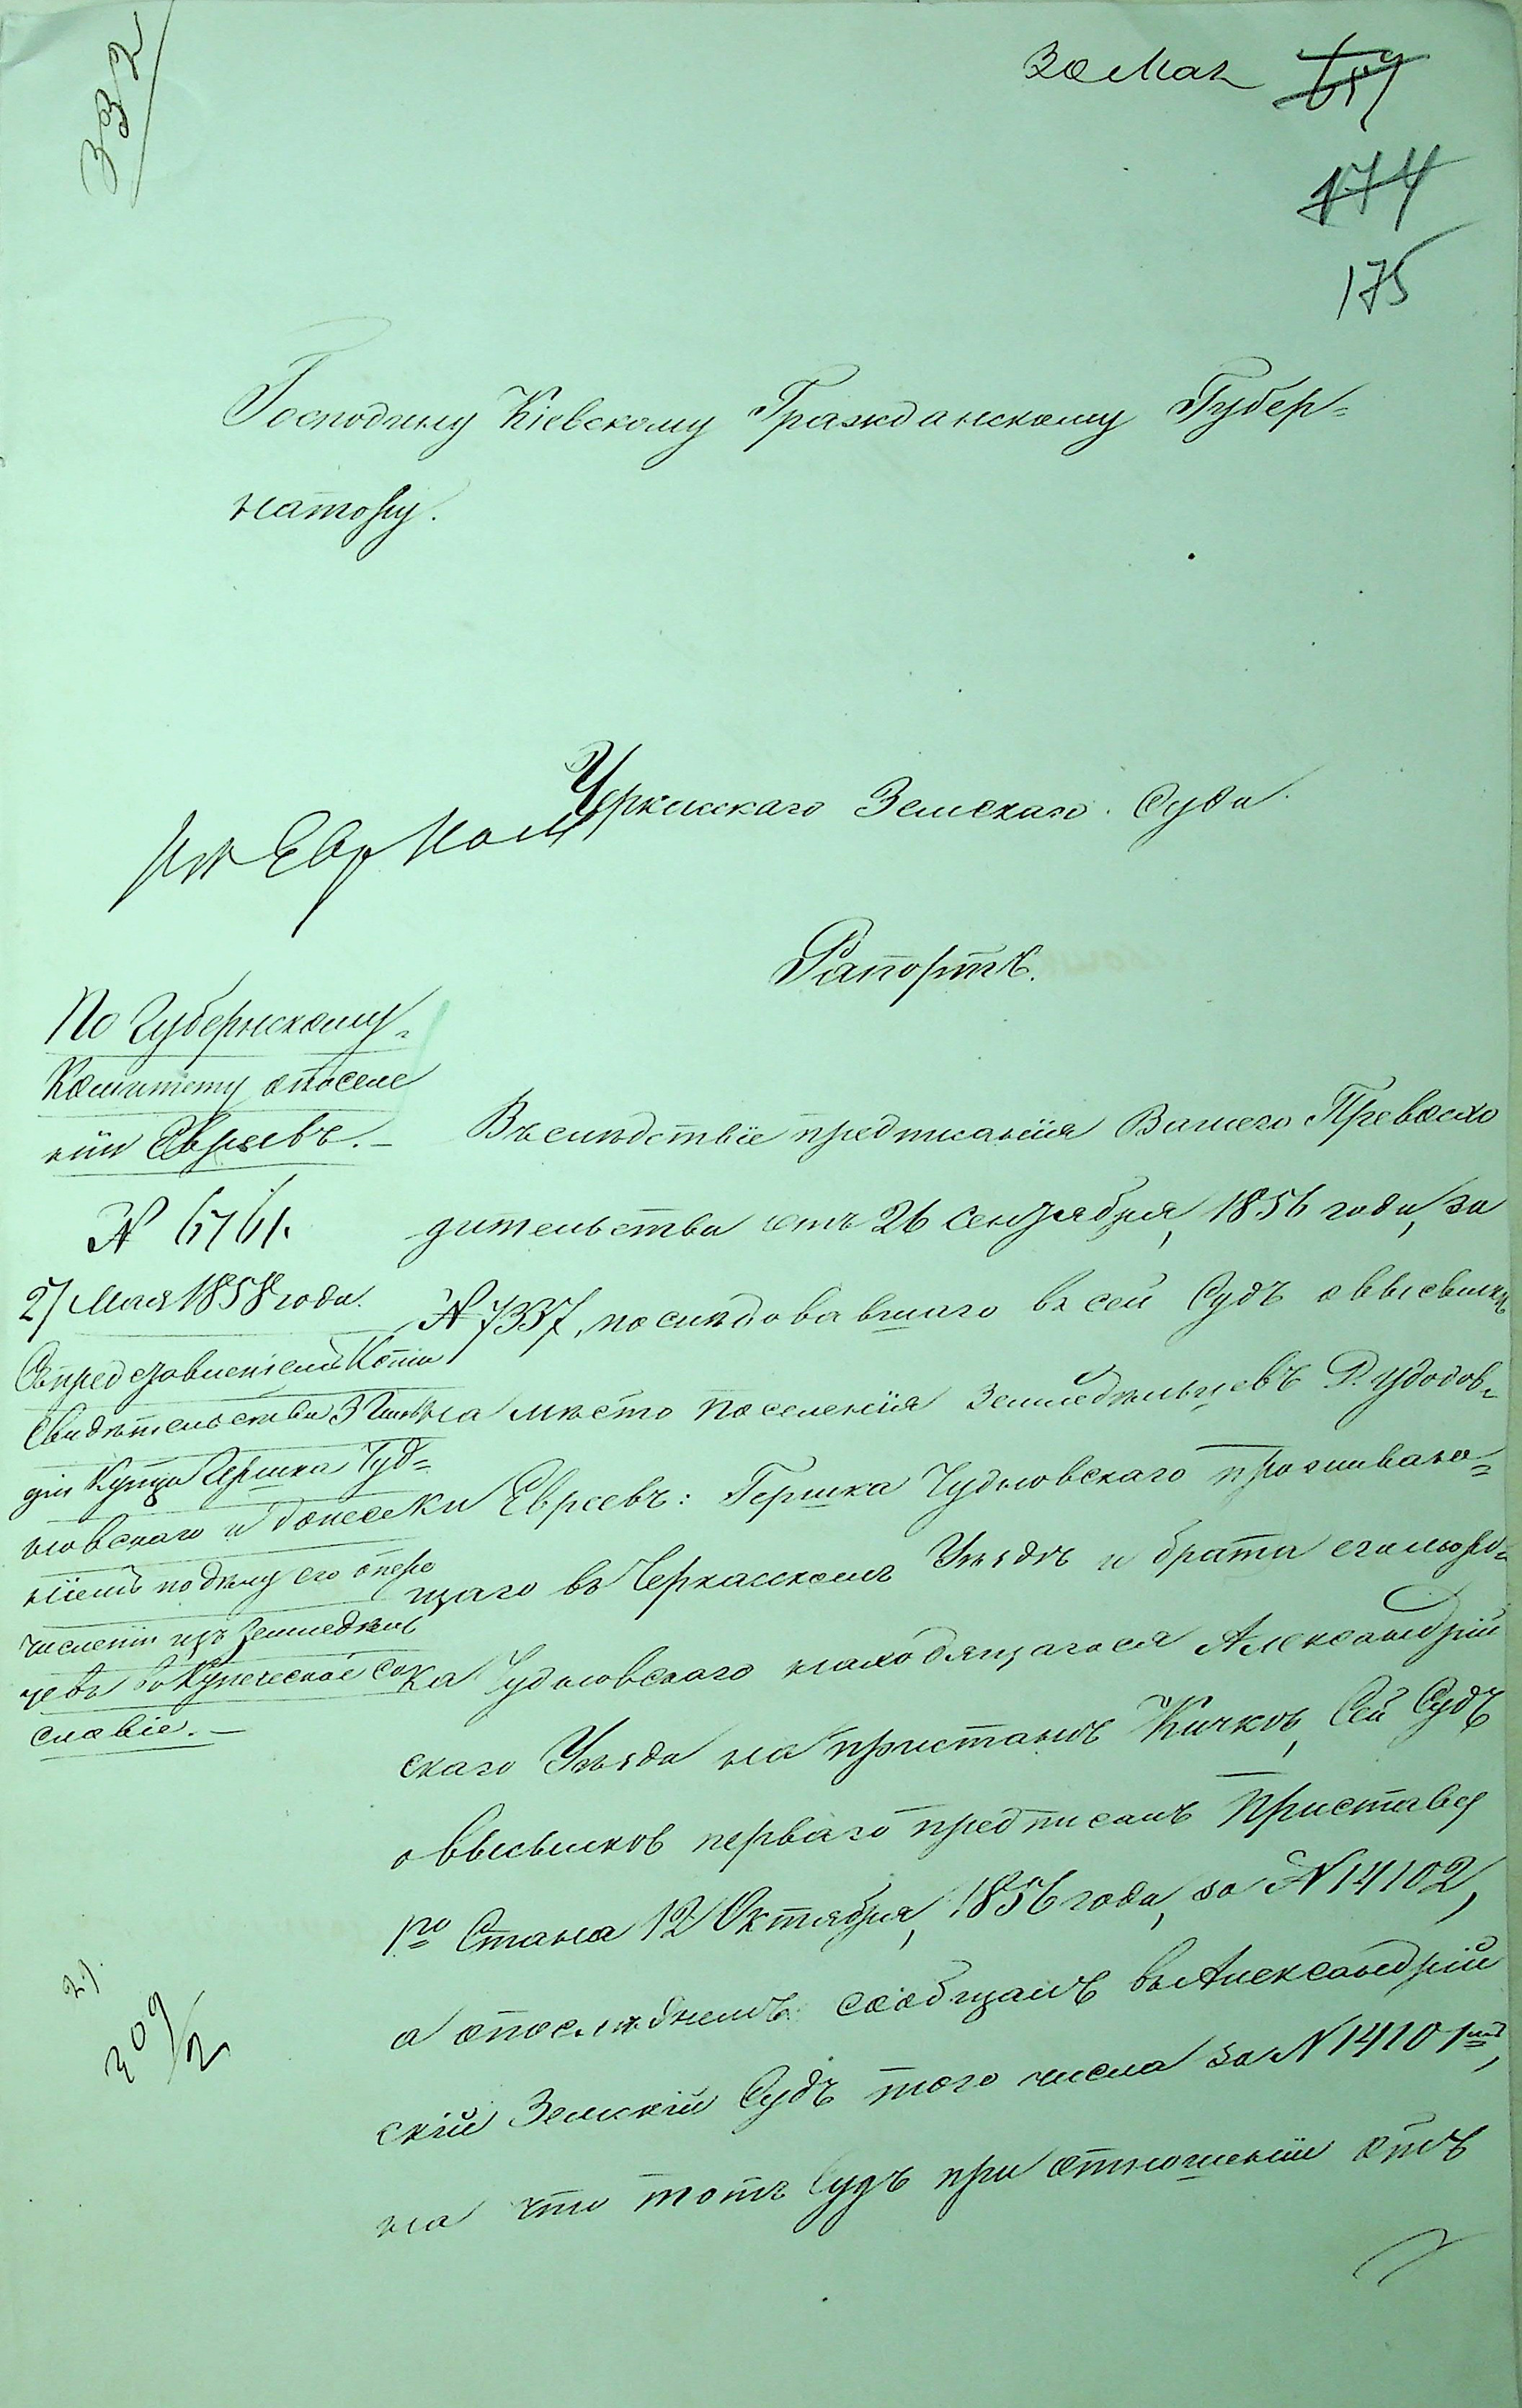 332
30 Мая
174
175
Господину Кіевскому Гражданскому Губер=
натору.
Черкасскаго Земскаго Суда
Рапортъ.
По Губернскому
Комитету о поселе
ніи Евреевъ. —
№ 6761.
27 Мая 1858 года.
Съ представленіемъ Копіи
Свидѣтельства 3 Гиль
діи Купца Гершка Чуд=
новскаго и донесе
ніемъ по дѣлу его о пере
численіи изъ Земледѣль
цевъ въ Купеческое со
словіе. —
Въ слѣдствіе предписанія Вашего Превосхо
дительства отъ 26 Сентября, 1856 года, за
№ 7337, послѣдовавшаго въ сей Судъ о высылкѣ
на мѣсто поселенія Земледѣльцевъ
ки Евреевъ: Гершка Чудновскаго проживаю=
щаго въ Черкасскомъ Уѣздѣ и брата его
ка Чудновскаго находящагося Александрій
скаго Уѣзда на пристанѣ Кичковѣ, Сей Судъ
о высылкѣ перваго предписалъ Приставу
1го Стана 12 Октября, 1856 года, за № 14102,
а о послѣднемъ сообщалъ въ Александрій
скій Земскій Судъ того числа за № 14101мъ,
на что тотъ Судъ при отношеніи отъ
209/2